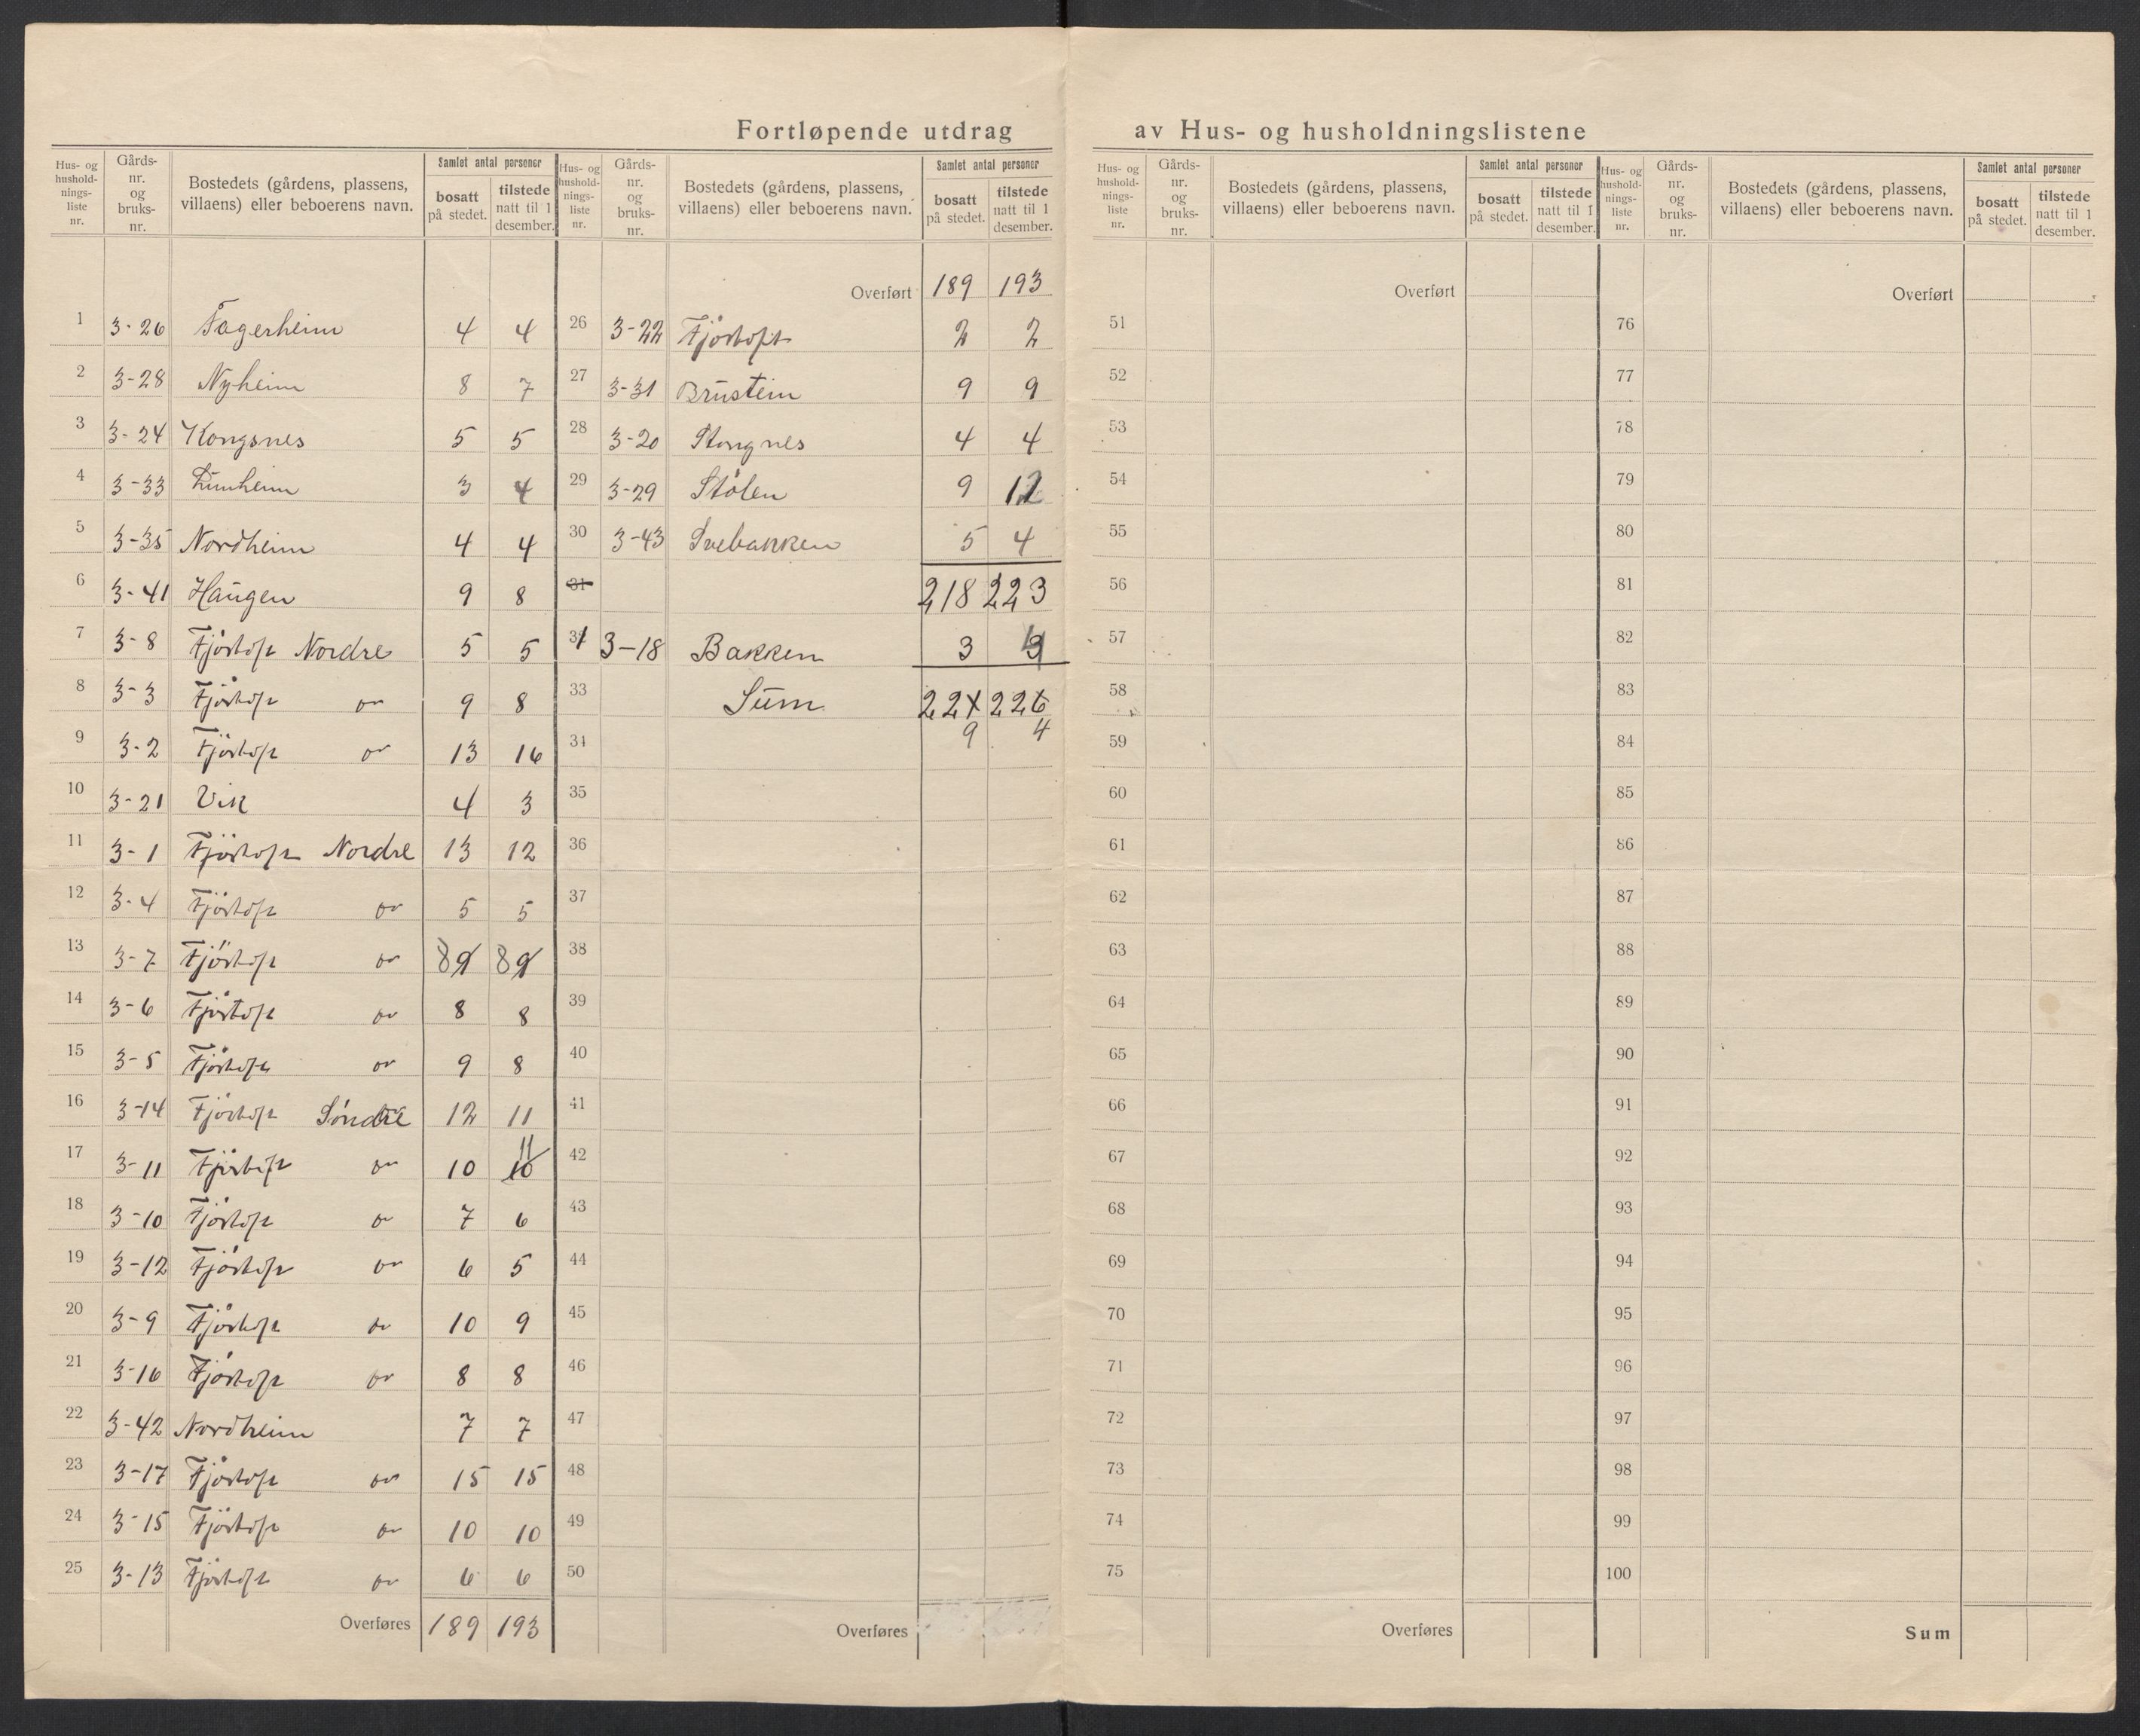 Fortløpende utdrag av Hus- og husholdningslistene
Hus- og hushold-nings-liste nr. | Gårds-nr. og bruks-nr. | Bostedets (gårdens, plassens, villaens) eller beboerens navn. | Samlet antal personer | bosatt på stedet. | tilstede natt til 1 desember.
1 3-26 Fagerheim 4 4
2 3-28 Nyheim 8 7
3 3-24 Kongsnes 5 5
4 3-33 3 4
5 3-35 Nordheim 4 4
6 3-41 Haugen 9 8
7 3-8 Fjørtoft Nordre 5 5
8 3-3 Fjørtoft " 9 8
9 3-2 Fjørtoft " 13 16
10 3-21 Vik 4 3
11 3-1 Fjørtoft Nordre 13 12
12 3-4 Fjørtoft " 5 5
13 3-7 Fjørtoft " 8 9 8 9
14 3-6 Fjørtoft " 8 8
15 3-5 Fjørtoft " 9 8
16 3-14 Fjørtoft Søndre 12 11
17 3-11 Fjørtoft " 10 10 11
18 3-10 Fjørtoft " 7 6
19 3-12 Fjørtoft " 6 5
20 3-9 Fjørtoft " 10 9
21 3-16 Fjørtoft " 8 8
22 3-42 Nordheim 7 7
23 3-17 Fjørtoft " 15 15
24 3-15 Fjørtoft " 10 10
25 3-13 Fjørtoft " 6 6
Overføres 189 193
Hus- og hushold-nings-liste nr. | Gårds-nr. og bruks-nr. | Bostedets (gårdens, plassens, villaens) eller beboerens navn. | Samlet antal personer | bosatt på stedet. | tilstede natt til 1 desember.
Overført 189 193
26 3-22 Fjørtoft 2 2
27 3-31 Brustein 9 9
28 3-20 Stongnes 4 4
29 3-29 Stølen 9 12
30 3-43 5 4
31 218 223
31 3-18 Bakken 3
33 Sum 221 226
34 9 4
35
36
37
38
39
40
41
42
43
44
45
46
47
48
49
50
Overføres
Hus- og hushold-nings-liste nr. | Gårds-nr. og bruks-nr. | Bostedets (gårdens, plassens, villaens) eller beboerens navn. | Samlet antal personer | bosatt på stedet. | tilstede natt til 1 desember.
Overført
51
52
53
54
55
56
57
58
59
60
61
62
63
64
65
66
67
68
69
70
71
72
73
74
75
Overføres
Hus- og hushold-nings-liste nr. | Gårds-nr. og bruks-nr. | Bostedets (gårdens, plassens, villaens) eller beboerens navn. | Samlet antal personer | bosatt på stedet. | tilstede natt til 1 desember.
Overført
76
77
78
79
80
81
82
83
84
85
86
87
88
89
90
91
92
93
94
95
96
97
98
99
100
Sum